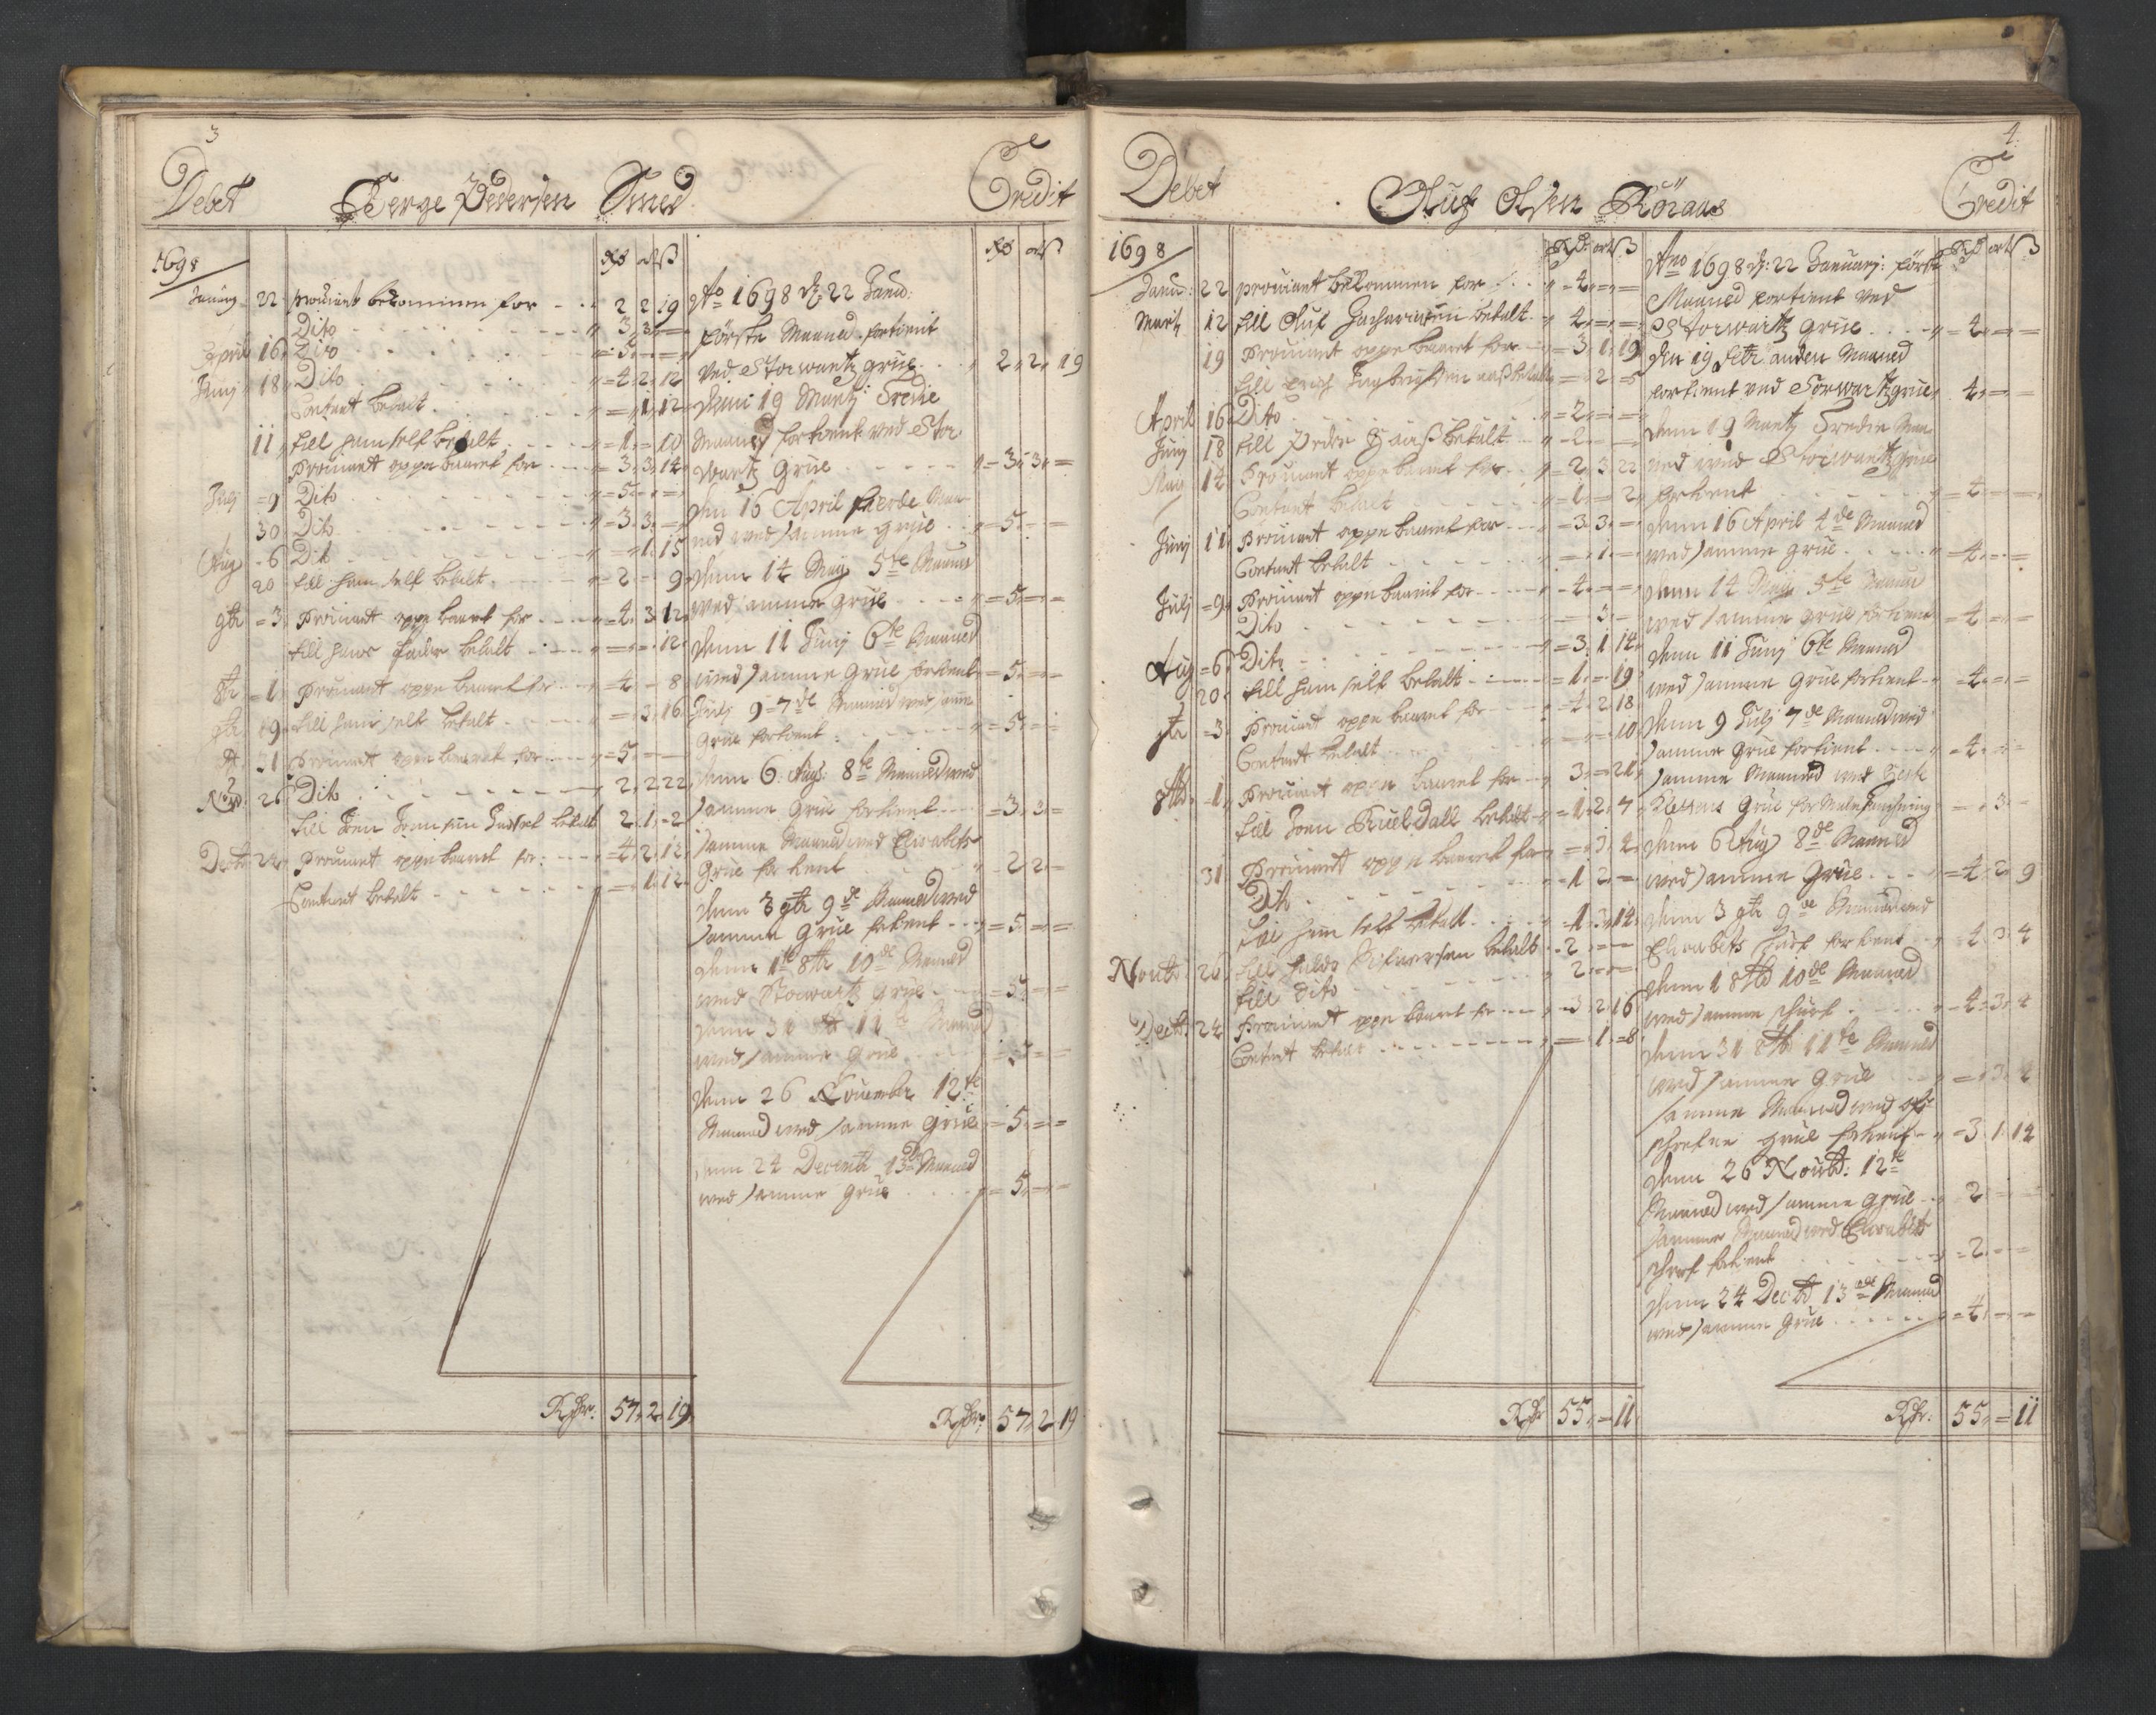 3
Debet Børge Pedersen Smed Credit
1698
Rd ort ß
Januarj 22 prouiant bekommen for 2 2 19
Dito 3 3 =
April 16 Dito 5 = =
Junj 18 Dito 4 2 12
Contant betalt = 1 12
11 till ham self betalt 1 = 10
Prouiant oppe baaret for 3 3 14
Julj 9 Dito 5 = =
30 Dito 3 3 =
Aug 6 Dito = 1 15
20 till ham self betalt 2 = 9
7br 3 Prouiant oppe baaret for 4 3 12
till hans fader betalt = = 12
8br 1 Prouiant oppe baaret for 4 = 8
9 till ham self betalt = 3 16
31 Prouiant oppe baaret for 5 = =
Nov 26 Dito 2 2 22
till betalt 2 1 2
Decbr 24 Prouiant oppe baaret for 4 2 12
Contant betalt = 1 12
Rdr. 57 2 19
Rd ort ß
Ao 1698 d. 22 Janu.
förste Maaned fortient
ved Storwartz grue 2 2 19
Denn 19 Martj Tredie
Maaned fortient ved Stor
wartz Grue 3 3 =
Den 16 April fierde Maa
ned wed samme grue 5 = =
Denn 14 Maij 5te Maaned
wed samme grue 5 = =
Denn 11 Junj 6te Maaned
wed samme Grue fortient 5 = =
Julj 9 = 7de Maaned wed samme
Grue fortient 5 = =
Denn 6 Aug: 8te Maaned wed
samme Grue fortient 3 3 =
samme Maaned wed Elisabets
Grue fortient 2 2 =
Denn 3 7br 9de Maaned wed
samme Grue fortient 5 = =
Denn 1te 8br 10de Maaned
wed Storwartz Grue 5 = =
Denn 31 8br 11te Maaned
wed samme Grue 5 = =
Denn 26 Nouember 12te
Maaned wed samme Grue 5 = =
Denn 24 Decembr 13de Maaned
wed samme Grue 5 = =
Rdr. 57 2 19
4
Debet Oluf Olsen Röraas Credit
1698
Rdr ort ß
Janu: 22 prouiant bekommen for 4 = =
Martj 12 till Oluf Zachariesen betalt 4 = =
19 Prouiant oppe baaret for 3 1 19
till Ingbrigtsen betalt = 2 5
April 16 Dito 2 = =
Junj 18 till Peder betalt 2 = =
May 14 Prouiant oppe baaret for 2 3 22
Contant betalt 1 = 2
Junj 11 Prouiant oppe baaret for 3 3 =
Contant betalt = 1 =
Julj 9 Prouiant oppe baaret for 4 = =
Dito = 3 =
Aug 6 Dito 3 1 14
20 till ham self betalt 1 = 19
7br 3 Prouiant oppe baaret for 4 2 18
Contant betalt = = 10
8br 1 Prouiant oppe baaret for 3 = 21
till Joen betalt 1 2 7
Prouiant oppe baaret for = 3 2
31 Dito 1 2 =
till ham self betalt 1 3 14
Noubr 26 till betalt 2 = =
till Dito 2 = =
Decbr. 24 Prouiant oppe baaret for 3 2 16
Contant betalt = 1 8
Rdr 55 = 11
Rdr ort ß
Ano 1698 d: 22 Januarj: förste
Maaned fortient ved
Storwartz grue 4 = =
Den 19 Febr anden Maaned
fortient ved Storwartz grue 4 = =
Denn 19 Martj Tredie Maa
ned wed Storwartz grue
fortient 4 = =
Denn 16 April 4de Maaned
wed samme grue 4 = =
Denn 14 Maij 5te Maaned
wed samme grue fortient 4 = =
Denn 11 Junj 6te Maaned
wed samme Grue fortient 4 = =
Denn 9 Julj 7de Maaned wed
samme Grue fortient 4 = =
samme Maaned wed
Grue for = 3 =
Denn 6 Aug 8de Maaned
wed samme Grue 4 2 9
Denn 3 7br 9de Maaned wed
Elisabets fortient 4 3 4
Denn 1 8br 10de Maaned
wed samme 4 3 4
Denn 31 8br 11te Maaned
wed samme Grue = 3 2
samme Maaned wed
grue fortient 3 1 14
Denn 26 Noubr: 12te
Maaned wed samme grue 2 = =
samme Maaned wed Elisabets
fortient 2 = =
Denn 24 Decbr 13de Maaned
wed samme Grue 4 = =
Rdr: 55 = 11